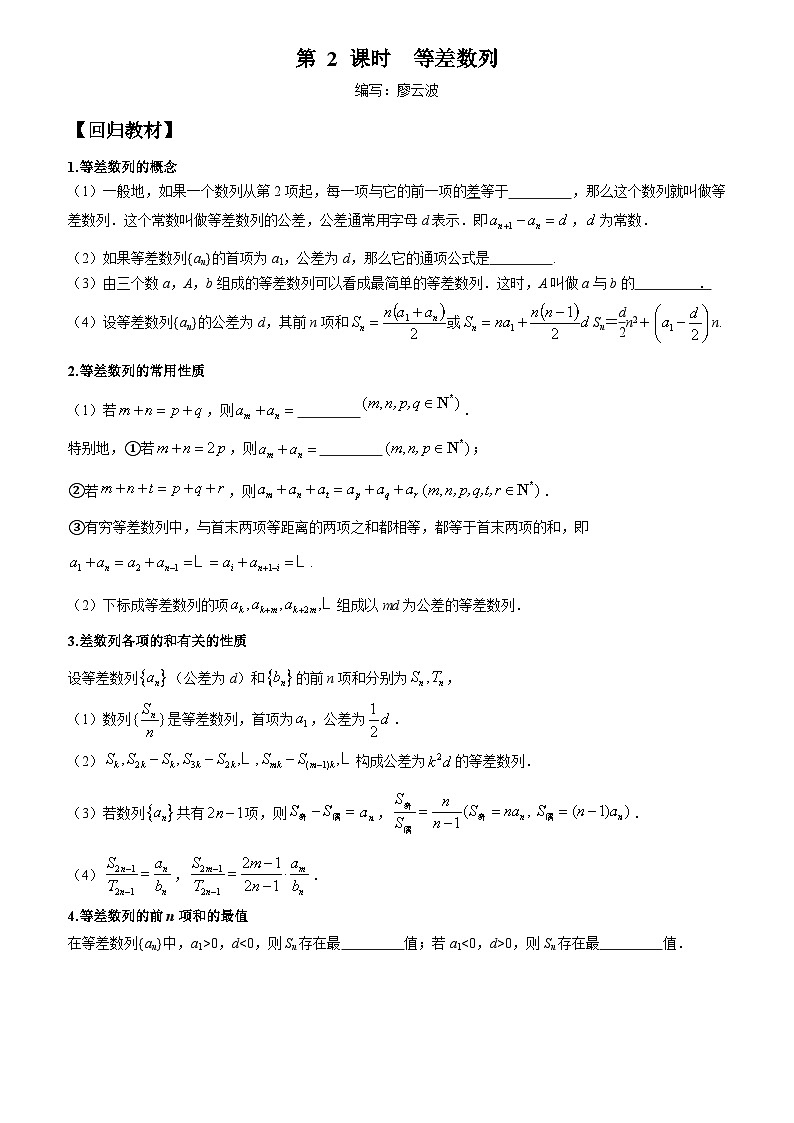 第 2 课时 等差数列
编写：廖云波
【回归教材】
1.等差数列的概念
（1）一般地，如果一个数列从第 2 项起，每一项与它的前一项的差等于_________，那么这个数列就叫做等
差数列．这个常数叫做等差数列的公差，公差通常用字母 d 表示．即 $a_{n+1}-a_n=d$，$d$ 为常数．
（2）如果等差数列{aₙ}的首项为 a₁，公差为 d，那么它的通项公式是_________.
（3）由三个数 a，A，b 组成的等差数列可以看成最简单的等差数列．这时，A 叫做 a 与 b 的_________．
（4）设等差数列{aₙ}的公差为 d，其前 n 项和 $S_n=\frac{n(a_1+a_n)}{2}$ 或 $S_n=na_1+\frac{n(n-1)}{2}d$ $S_n=\frac{d}{2}n^2+\left(a_1-\frac{d}{2}\right)n$.
2.等差数列的常用性质
（1）若 $m+n=p+q$，则 $a_m+a_n=$ _________ $(m,n,p,q\in \mathrm{N}^*)$．
特别地，①若 $m+n=2p$，则 $a_m+a_n=$ _________ $(m,n,p\in \mathrm{N}^*)$；
②若 $m+n+t=p+q+r$，则 $a_m+a_n+a_t=a_p+a_q+a_r$ $(m,n,p,q,t,r\in \mathrm{N}^*)$．
③有穷等差数列中，与首末两项等距离的两项之和都相等，都等于首末两项的和，即
$a_1+a_n=a_2+a_{n-1}=$L$=a_i+a_{n+1-i}=$L．
（2）下标成等差数列的项 $a_k,a_{k+m},a_{k+2m},$L 组成以 md 为公差的等差数列．
3.差数列各项的和有关的性质
设等差数列 $\{a_n\}$（公差为 d）和 $\{b_n\}$ 的前 n 项和分别为 $S_n,T_n$，
（1）数列 $\{\frac{S_n}{n}\}$ 是等差数列，首项为 $a_1$，公差为 $\frac{1}{2}d$．
（2）$S_k,S_{2k}-S_k,S_{3k}-S_{2k},$L$,S_{mk}-S_{(m-1)k},$L 构成公差为 $k^2d$ 的等差数列．
（3）若数列 $\{a_n\}$ 共有 $2n-1$ 项，则 $S_奇-S_偶=a_n$，$\frac{S_奇}{S_偶}=\frac{n}{n-1}(S_奇=na_n,S_偶=(n-1)a_n)$．
（4）$\frac{S_{2n-1}}{T_{2n-1}}=\frac{a_n}{b_n}$，$\frac{S_{2m-1}}{T_{2n-1}}=\frac{2m-1}{2n-1}\cdot\frac{a_m}{b_n}$．
4.等差数列的前 n 项和的最值
在等差数列{aₙ}中，a₁>0，d<0，则 Sₙ 存在最_________值；若 a₁<0，d>0，则 Sₙ 存在最_________值．